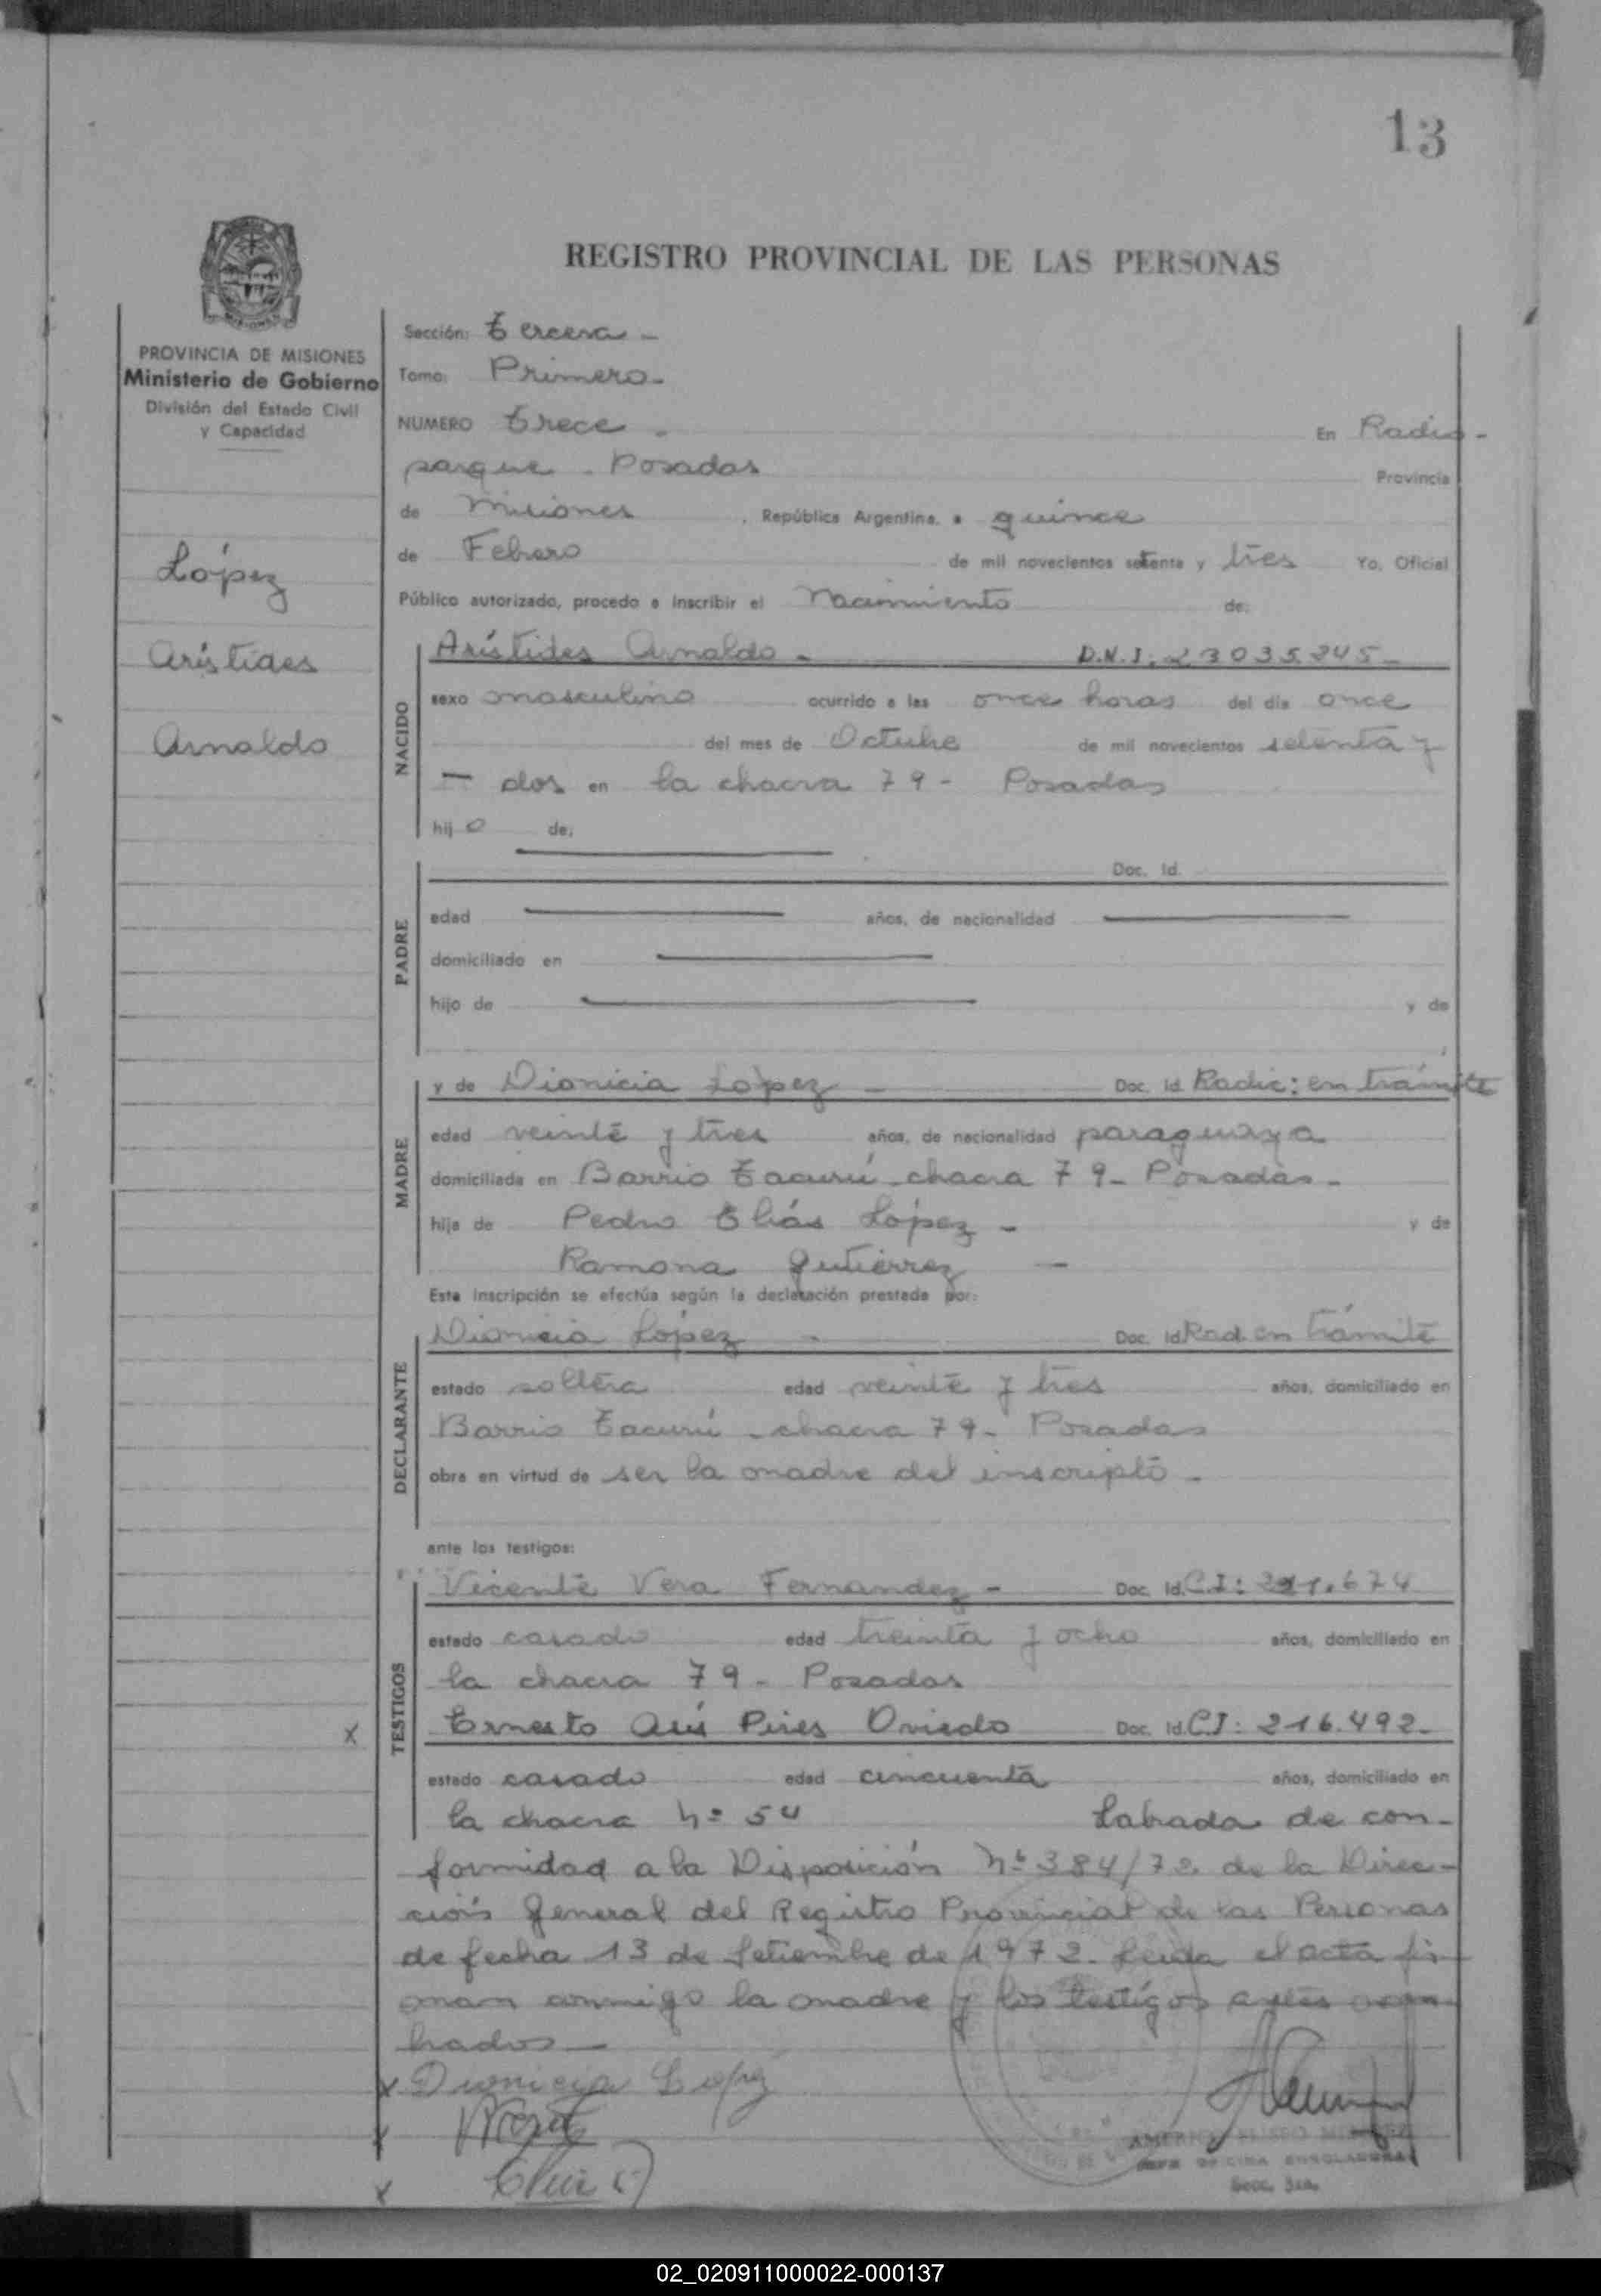 13
REGISTRO PROVINCIAL DE LAS PERSONAS
PROVINCIA DE MISIONES
Ministerio de Gobierno
División del Estado Civil
y Capacidad
López
Arístides
Arnaldo
Sección: Tercera -
Tomo: Primero -
NUMERO Trece - En Radio -
parque - Posadas Provincia
de Misiones, República Argentina, a quince
de Febrero de mil novecientos setenta y tres Yo, Oficial
Público autorizado, procedo a inscribir el Nacimiento de:
NACIDO
Arístides Arnaldo - D.N.I: 23035245 -
sexo masculino ocurrido a las once horas del día once
del mes de Octubre de mil novecientos setenta y
- dos en la chacra 79 - Posadas
hijo de:
PADRE
Doc. Id.
edad años, de nacionalidad
domiciliado en
hijo de y de
MADRE
y de Dionicia López - Doc. Id. Radic: en trámite
edad veinte y tres años, de nacionalidad paraguaya
domiciliada en Barrio Tacurú - chacra 79 - Posadas -
hija de Pedro Elías López - y de
Ramona Gutierrez -
Esta inscripción se efectúa según la declaración prestada por:
DECLARANTE
Dionicia López - Doc. Id. Rad. en trámite
estado soltera edad veinte y tres años, domiciliado en
Barrio Tacurú - chacra 79 - Posadas
obra en virtud de ser la madre del inscripto -
ante los testigos:
TESTIGOS
Vicente Vera Fernandez - Doc. Id. C.I:
estado casado edad treinta y ocho años, domiciliado en
la chacra 79 - Posadas
x Ernesto Pires Oviedo Doc. Id. C.I: 216.492 -
estado casado edad cincuenta años, domiciliado en
la chacra Nº 54 Labrada de con-
formidad a la Disposición Nº 384/72 de la Direc-
ción General del Registro Provincial de las Personas
de fecha 13 de Setiembre de 1972 - Leida el acta fir
man conmigo la madre y los testigos antes nom
brados -
x Dionicia Lopez
x
x
Secc. 3ra.
02_020911000022-000137